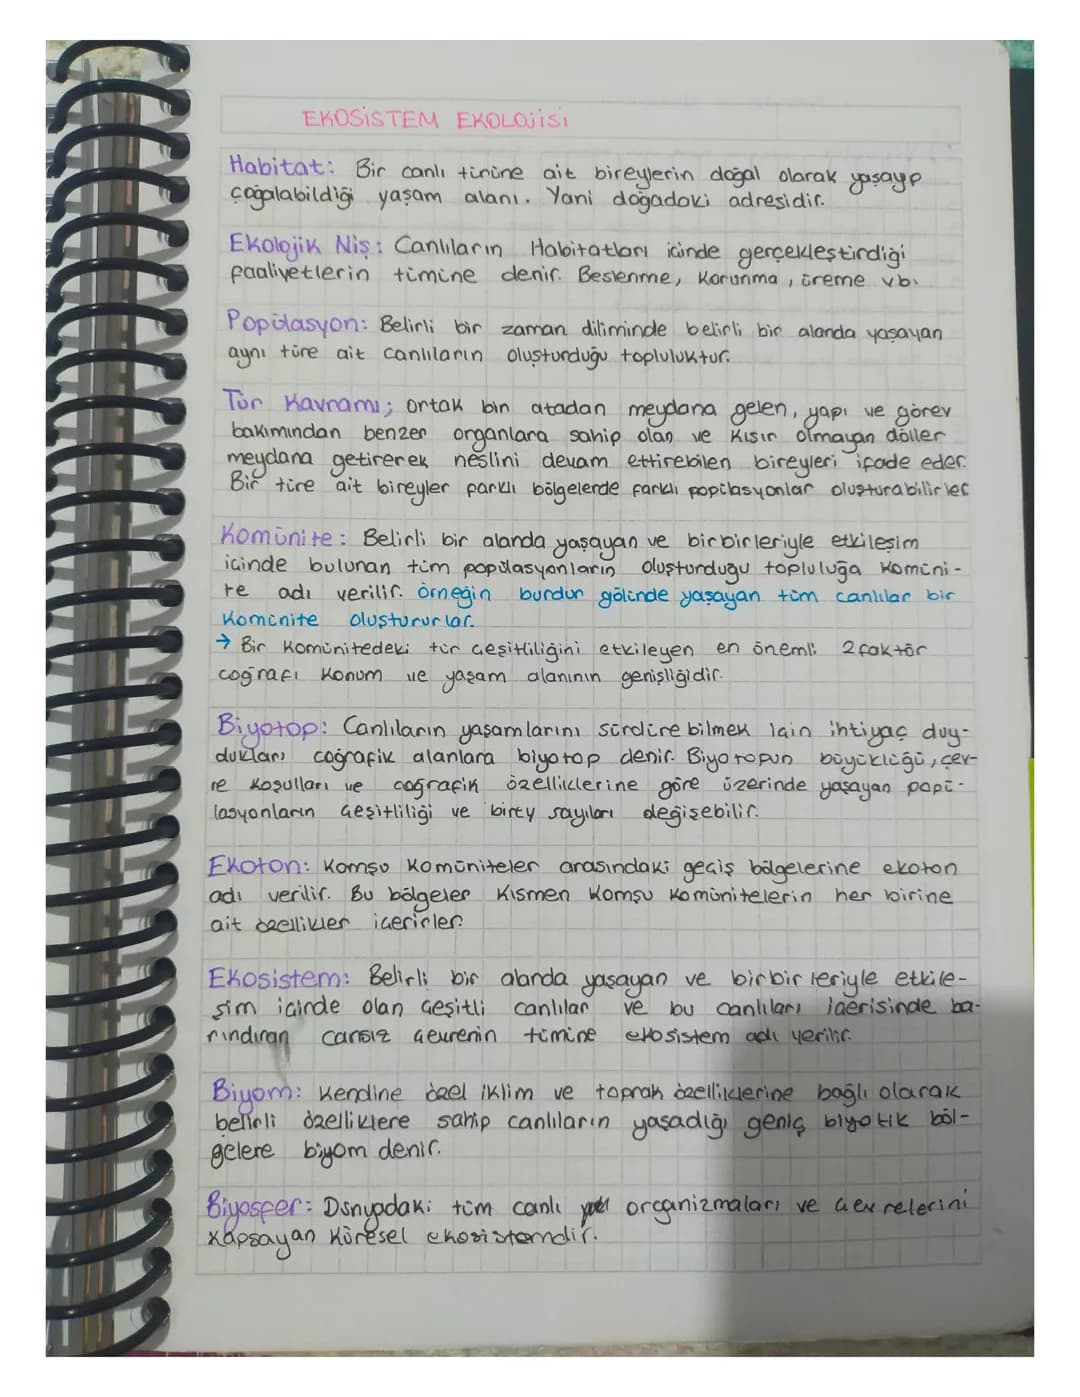 EKOSİSTEM EKOLOJİSİ
Habitat: Bir canlı türüne ait bireylerin doğal olarak yaşayıp
çoğalabildiği yaşam alanı. Yani doğadaki adresidir.
Ekolojik Niş: Canlıların Habitatları içinde gerçekleştirdiği
faaliyetlerin tümüne denir. Beslenme, Korunma, üreme vb.
Popülasyon: Belirli bir zaman diliminde belirli bir alanda yaşayan
aynı türe ait canlıların oluşturduğu topluluktur.
Tür Kavramı; ortak bir atadan meydana gelen, yapı ve görev
bakımından benzer organlara sahip olan ve kısır olmayan döller
meydana getirerek neslini devam ettirebilen bireyleri ifade eder.
Bir türe ait bireyler farklı bölgelerde farklı popülasyonlar oluşturabilirler
Komünite: Belirli bir alanda yaşayan ve birbirleriyle etkileşim
içinde bulunan tüm popülasyonların oluşturduğu topluluğa komüni-
te adı verilir. Örneğin burdur gölünde yaşayan tüm canlılar bir
Komünite oluştururlar.
→ Bir Komünitedeki tür çeşitliliğini etkileyen en önemli 2 faktör
coğrafi konum ve yaşam alanının genişliğidir.
Biyotop: Canlıların yaşamlarını sürdürebilmek için ihtiyaç duy-
dukları coğrafik alanlara biyotop denir. Biyotopun büyüklüğü, çev-
re koşulları ve coğrafik özelliklerine göre üzerinde yaşayan popü-
lasyonların çeşitliliği ve birey sayıları değişebilir.
Ekoton: Komşu Komüniteler arasındaki geçiş bölgelerine ekoton
adı verilir. Bu bölgeler kısmen komşu komünitelerin her birine
ait özellikler içerirler.
Ekosistem: Belirli bir alanda yaşayan ve birbirleriyle etkile-
şim içinde olan çeşitli canlılar ve bu canlıları içerisinde ba-
rındıran cansız çevrenin tümüne ekosistem adı verilir.
Biyom: Kendine özel iklim ve toprak özelliklerine bağlı olarak
belirli özelliklere sahip canlıların yaşadığı geniş biyotik böl-
gelere biyom denir.
Biyosfer: Dünyadaki tüm canlı organizmaları ve çevrelerini
kapsayan küresel ekosistemdir.